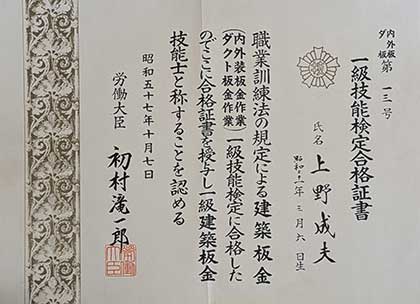 内外板
ダク板 第一三号
一級技能検定合格証書
氏名 上野成夫
昭和十一年三月六日生
職業訓練法の規定による建築板金
(内外装板金作業
ダクト板金作業)一級技能検定に合格した
のでここに合格証書を授与し一級建築板金
技能士と称することを認める
昭和五十七年十月七日
労働大臣 初村滝一郎